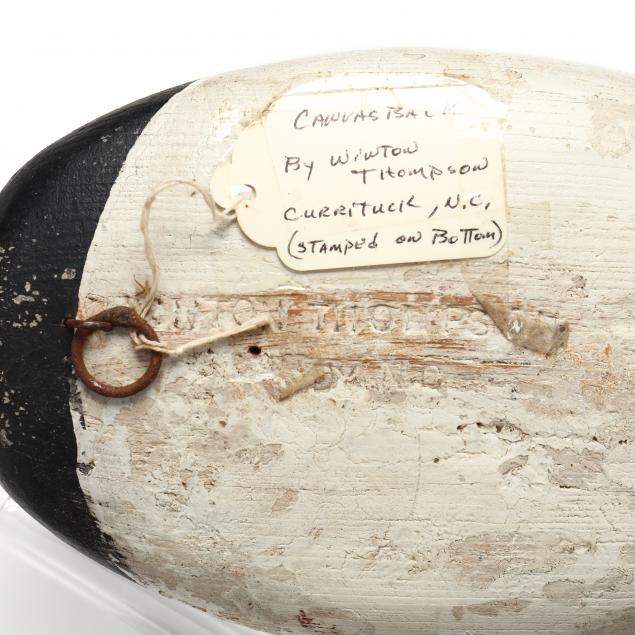 CANVASBACK
BY WINTON
THOMPSON
CURRITUCK, N.C.
(STAMPED ON BOTTOM)
THOMPS
N.C.